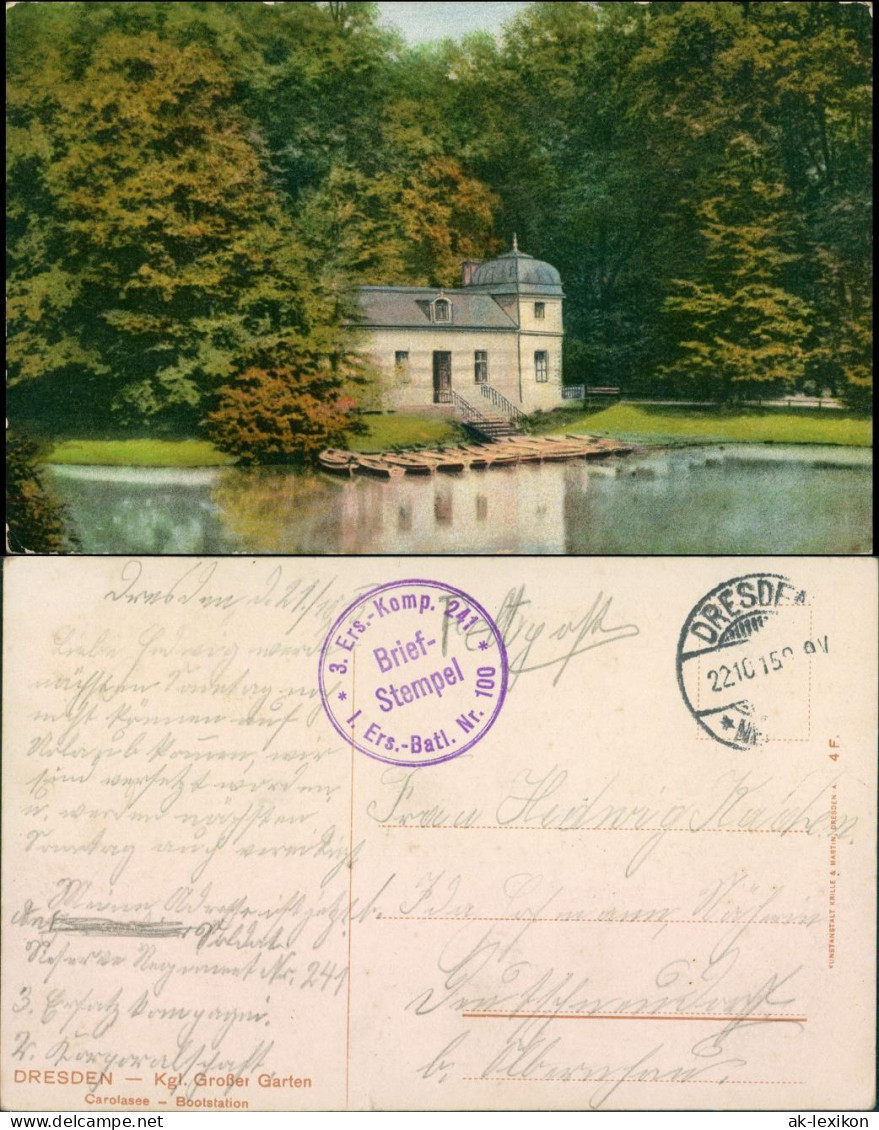 Dresden d. 21./10.
Feldpost
3. Ers.-Komp. 241
Brief-
Stempel
I. Ers.-Batl. Nr. 100
DRESDEN
22.10.15
Liebe Hedwig werde
nächsten Sonntag noch
nicht können auf
Urlaub kommen, wir
sind versetzt worden
u. werden nächsten
Sonntag auch vereidigt
Meine Adresse ist jetzt
Soldat
Reserve Regiment Nr. 241
3. Ersatz Kompagnie.
2. Korporalschaft.
Frau Hedwig
b. Ida Hofmann, Näherin
Deutschneudorf
b. Olbernhau.
DRESDEN — Kgl. Großer Garten
Carolasee – Bootstation
KUNSTANSTALT KRILLE & MARTIN, DRESDEN-A. 4 F.
ak-lexikon